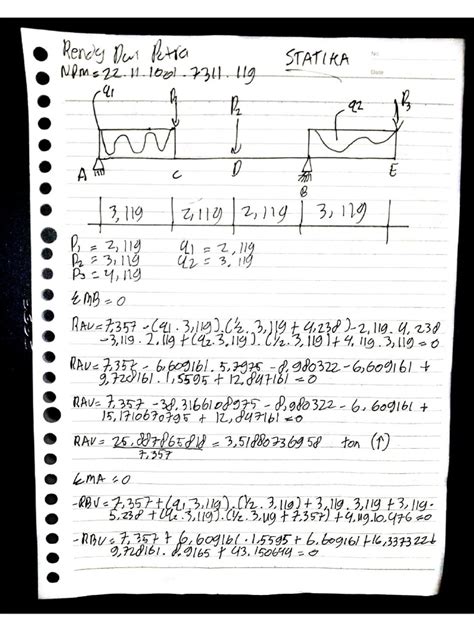 Rendy Dwi Putra
STATIKA
No
Date
NPM = 22.11.1001.7311.119
q1 P1 P2 q2 P3
A C D B E
3,119 2,119 2,119 3,119
P1 = 2,119 q1 = 2,119
P2 = 3,119 q2 = 3.119
P3 = 4,119
ΣMB = 0
RAV = 7,357 - (q1 . 3,119) . (1/2 . 3,119 + 4,238) - 2,119 . 4,238
- 3,119 . 2,119 + (q2 . 3,119) . (1/2 . 3,119) + 4,119 . 3,119 = 0
RAV = 7,357 - 6,609161 . 5,7975 - 8,980322 - 6,609161 +
9,728161 . 1,5595 + 12,847161 = 0
RAV = 7,357 - 38,3166108975 - 8,980322 - 6,609161 +
15,1710670795 + 12,847161 = 0
RAV = 25,887865818 / 7,357 = 3,51880736958 ton (↑)
ΣMA = 0
-RBV = 7,357 + (q1 . 3,119) . (1/2 . 3,119) + 3,119 . 3,119 + 3,119 .
5.238 + (q2 . 3,119) . (1/2 . 3,119 + 7,357) + 4,119 . 10,476 = 0
-RBV = 7,357 + 6,609161 . 1,5595 + 6.609161 + 16,337322 +
9,728161 . 8,9165 + 43.150644 = 0